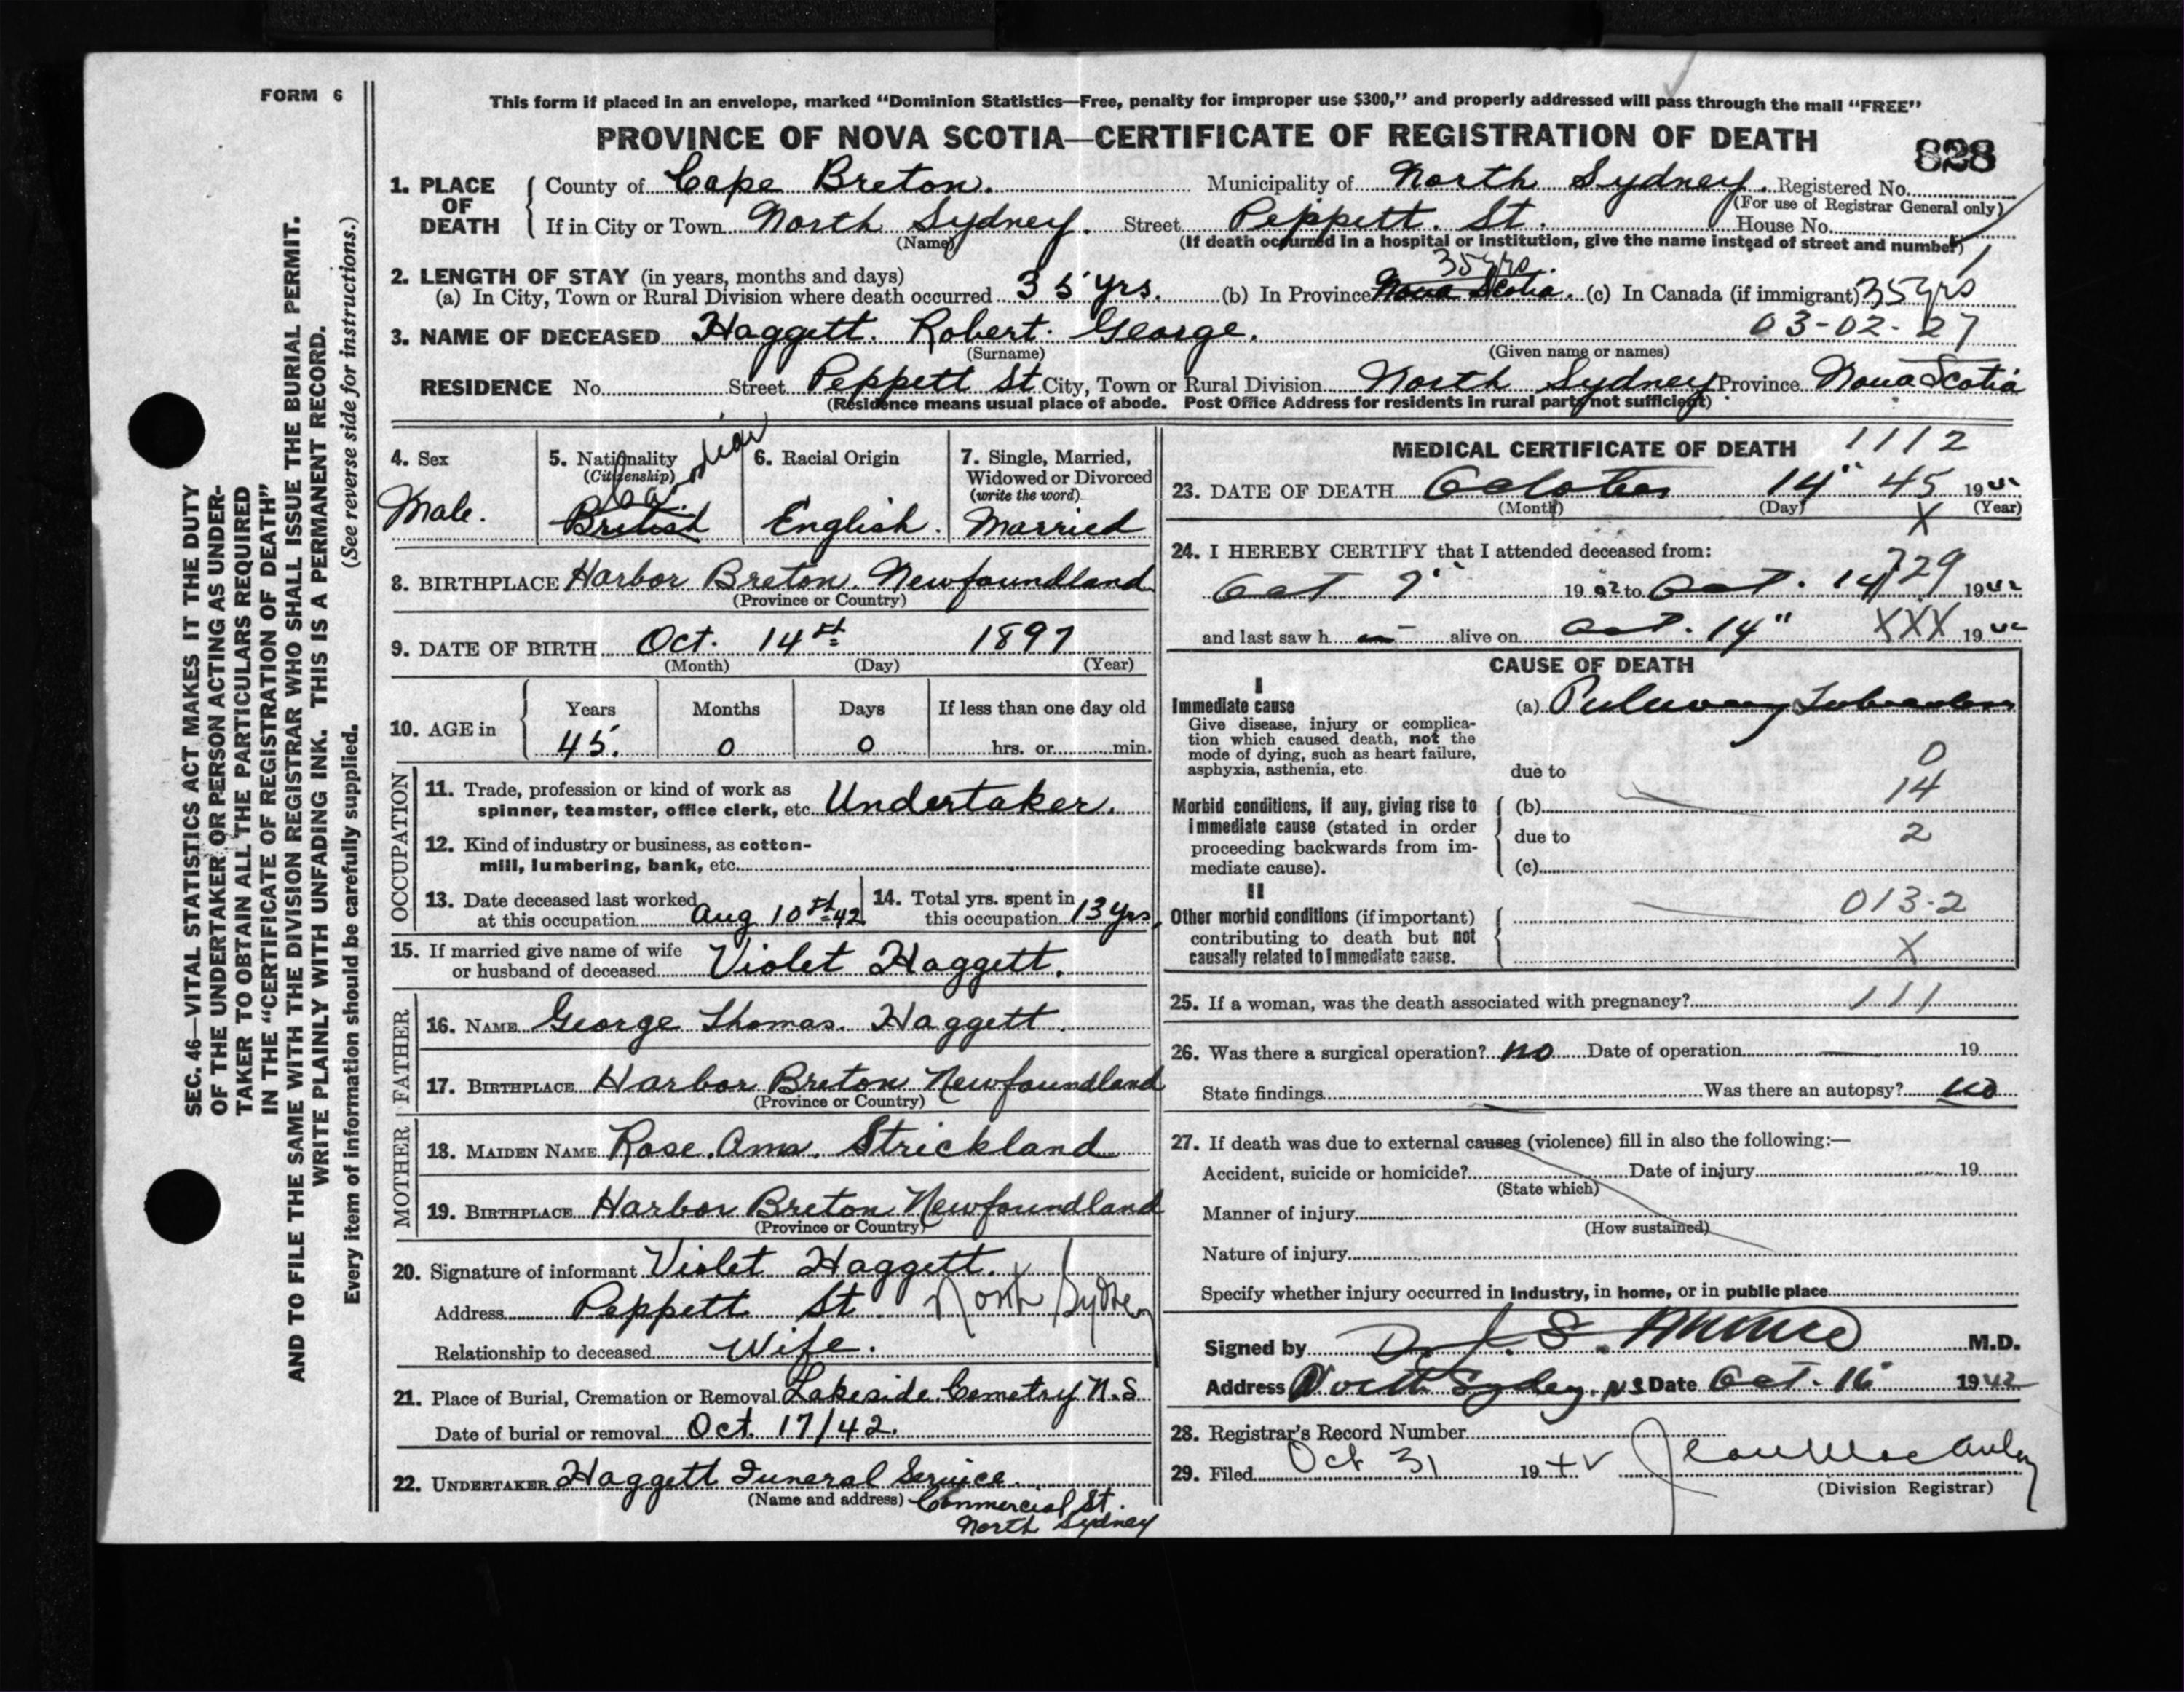 FORM 6
This form if placed in an envelope, marked “Dominion Statistics—Free, penalty for improper use $300,” and properly addressed will pass through the mail “FREE”
PROVINCE OF NOVA SCOTIA—CERTIFICATE OF REGISTRATION OF DEATH
828
1. PLACE OF DEATH County of Cape Breton. Municipality of North Sydney. Registered No.
(For use of Registrar General only)
If in City or Town North Sydney. Street Peppett. St. House No.
(Name) (If death occurred in a hospital or institution, give the name instead of street and number)
2. LENGTH OF STAY (in years, months and days) 35 yrs.
(a) In City, Town or Rural Division where death occurred 35 yrs. (b) In Province Nova Scotia. (c) In Canada (if immigrant) 35 yrs
3. NAME OF DECEASED Haggett. Robert. George. 03-02-27
(Surname) (Given name or names)
RESIDENCE No. Street Peppett St City, Town or Rural Division North Sydney Province Nova Scotia
(Residence means usual place of abode. Post Office Address for residents in rural parts not sufficient)
4. Sex
Male.
5. Nationality
(Citizenship)
Canadian
British
6. Racial Origin
English.
7. Single, Married,
Widowed or Divorced
(write the word)
Married
8. BIRTHPLACE Harbor Breton. Newfoundland
(Province or Country)
9. DATE OF BIRTH Oct. 14th 1897
(Month) (Day) (Year)
10. AGE in Years Months Days If less than one day old
45. 0 0 hrs. or min.
OCCUPATION
11. Trade, profession or kind of work as
spinner, teamster, office clerk, etc. Undertaker.
12. Kind of industry or business, as cotton-
mill, lumbering, bank, etc.
13. Date deceased last worked
at this occupation Aug 10th-42
14. Total yrs. spent in
this occupation 13 yrs.
15. If married give name of wife
or husband of deceased Violet Haggett.
FATHER
16. NAME George Thomas. Haggett.
17. BIRTHPLACE Harbor Breton Newfoundland
(Province or Country)
MOTHER
18. MAIDEN NAME Rose. Ann. Strickland
19. BIRTHPLACE Harbor Breton Newfoundland
(Province or Country)
20. Signature of informant Violet Haggett.
Address Peppett St. North Sydney
Relationship to deceased Wife.
21. Place of Burial, Cremation or Removal Lakeside Cemetry N.S
Date of burial or removal Oct. 17/42.
22. UNDERTAKER Haggett Funeral Service.
(Name and address) Commercial St.
North Sydney
MEDICAL CERTIFICATE OF DEATH 1112
23. DATE OF DEATH October 14" 45 1942
(Month) (Day) (Year)
X
24. I HEREBY CERTIFY that I attended deceased from:
Oct 7" 1942 to Oct. 14 729 1942
and last saw h alive on Oct. 14" XXX 1942
CAUSE OF DEATH
I
Immediate cause
Give disease, injury or complica-
tion which caused death, not the
mode of dying, such as heart failure,
asphyxia, asthenia, etc.
(a) Pulmonary Tuberculosis
0
due to
14
Morbid conditions, if any, giving rise to
immediate cause (stated in order
proceeding backwards from im-
mediate cause).
(b)
due to 2
(c)
II
Other morbid conditions (if important)
contributing to death but not
causally related to immediate cause.
013-2
X
25. If a woman, was the death associated with pregnancy? 111
26. Was there a surgical operation? no Date of operation 19
State findings Was there an autopsy? no
27. If death was due to external causes (violence) fill in also the following:—
Accident, suicide or homicide? Date of injury 19
(State which)
Manner of injury
(How sustained)
Nature of injury
Specify whether injury occurred in industry, in home, or in public place
Signed by D. J. S. Munro M.D.
Address North Sydney. NS Date Oct. 16 1942
28. Registrar's Record Number
29. Filed Oct 31 1942 Jean MacAuley
(Division Registrar)
SEC. 46—VITAL STATISTICS ACT MAKES IT THE DUTY
OF THE UNDERTAKER OR PERSON ACTING AS UNDER-
TAKER TO OBTAIN ALL THE PARTICULARS REQUIRED
IN THE “CERTIFICATE OF REGISTRATION OF DEATH”
AND TO FILE THE SAME WITH THE DIVISION REGISTRAR WHO SHALL ISSUE THE BURIAL PERMIT.
WRITE PLAINLY WITH UNFADING INK. THIS IS A PERMANENT RECORD.
Every item of information should be carefully supplied. (See reverse side for instructions.)